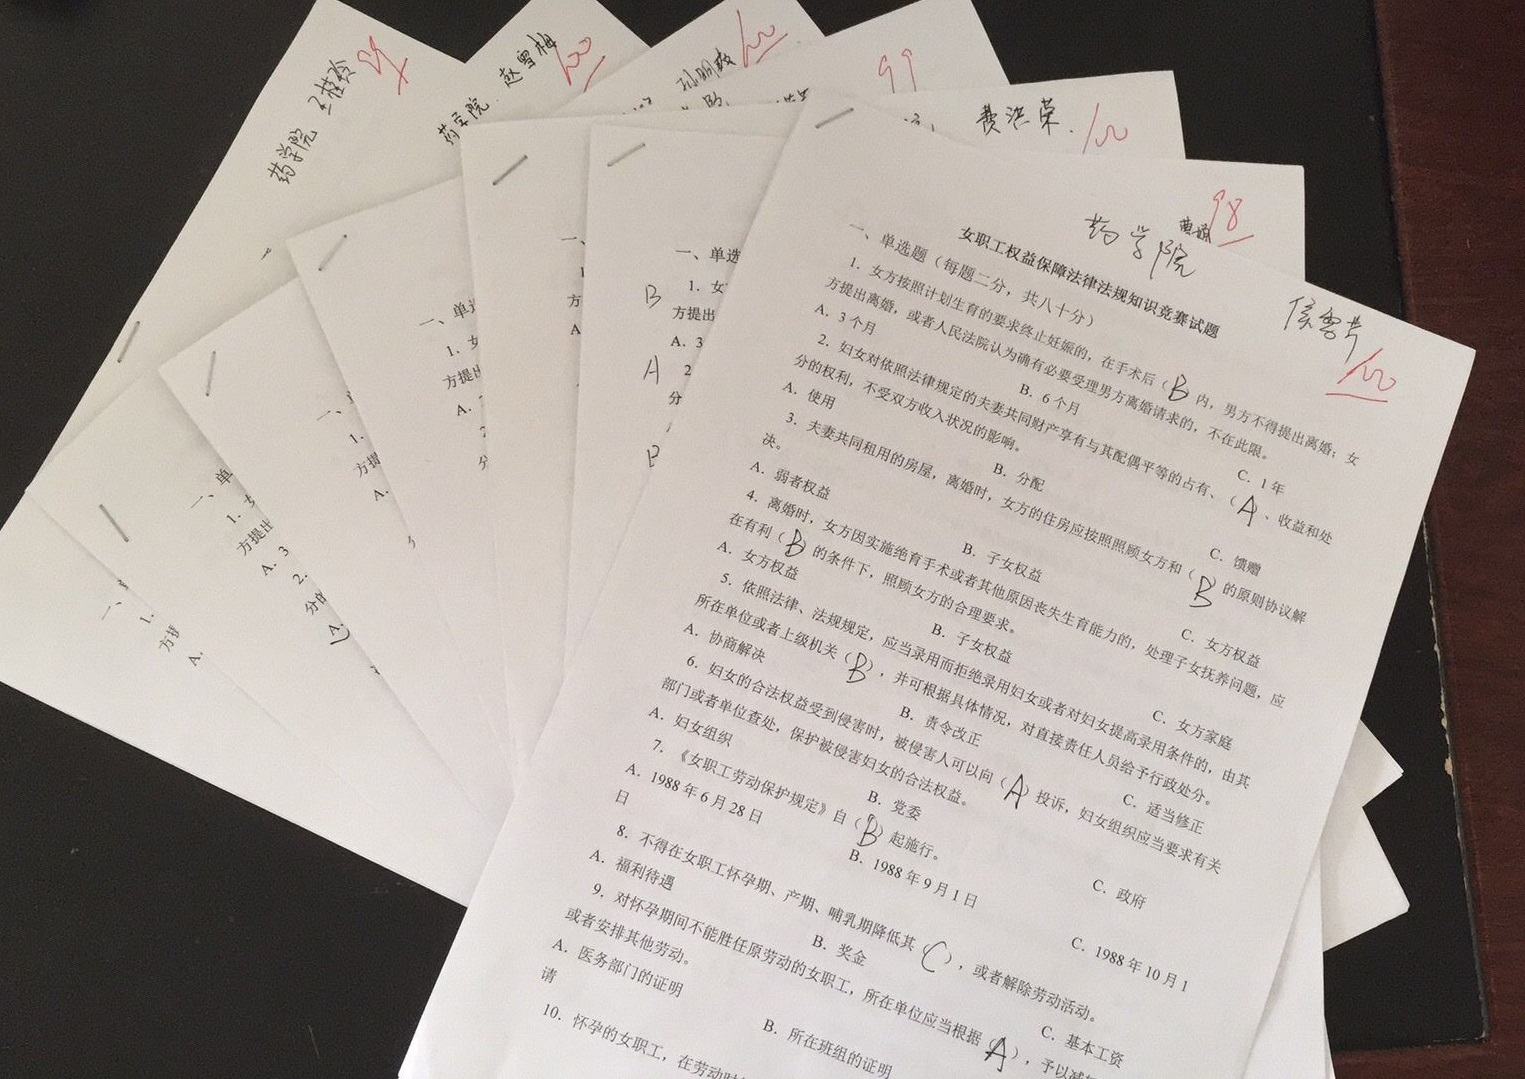 药学院 王桂玲
药学院 赵雪梅
100
100
99
费洪荣
100
98
药学院
侯雪芹
100
女职工权益保障法律法规知识竞赛试题
一、单选题（每题二分，共八十分）
1．女方按照计划生育的要求终止妊娠的，在手术后（B）内，男方不得提出离婚；女
方提出离婚，或者人民法院认为确有必要受理男方离婚请求的，不在此限。
A．3个月 B．6个月 C．1年
2．妇女对依照法律规定的夫妻共同财产享有与其配偶平等的占有、（A）、收益和处
分的权利，不受双方收入状况的影响。
A．使用 B．分配 C．馈赠
3．夫妻共同租用的房屋，离婚时，女方的住房应按照照顾女方和（B）的原则协议解
决。
A．弱者权益 B．子女权益 C．女方权益
4．离婚时，女方因实施绝育手术或者其他原因丧失生育能力的，处理子女抚养问题，应
在有利（B）的条件下，照顾女方的合理要求。
A．女方权益 B．子女权益 C．女方家庭
5．依照法律、法规规定，应当录用而拒绝录用妇女或者对妇女提高录用条件的，由其
所在单位或者上级机关（B），并可根据具体情况，对直接责任人员给予行政处分。
A．协商解决 B．责令改正 C．适当修正
6．妇女的合法权益受到侵害时，被侵害人可以向（A）投诉，妇女组织应当要求有关
部门或者单位查处，保护被侵害妇女的合法权益。
A．妇女组织 B．党委 C．政府
7．《女职工劳动保护规定》自（B）起施行。
A．1988年6月28日 B．1988年9月1日 C．1988年10月1
日
8．不得在女职工怀孕期、产期、哺乳期降低其（C），或者解除劳动活动。
A．福利待遇 B．奖金 C．基本工资
9．对怀孕期间不能胜任原劳动的女职工，所在单位应当根据（A），予以减
或者安排其他劳动。
A．医务部门的证明 B．所在班组的证明
请
10．怀孕的女职工，在劳动时
一、单选
B 1．女
方提出
A．3
A 2
分
B
一、
方
A
一、单
1．女
方提出
A．
分
一、
1．
方提
A．
一、单
1．女
方提出
A．3
2．
分的
A．
一、
1．
方提
A．